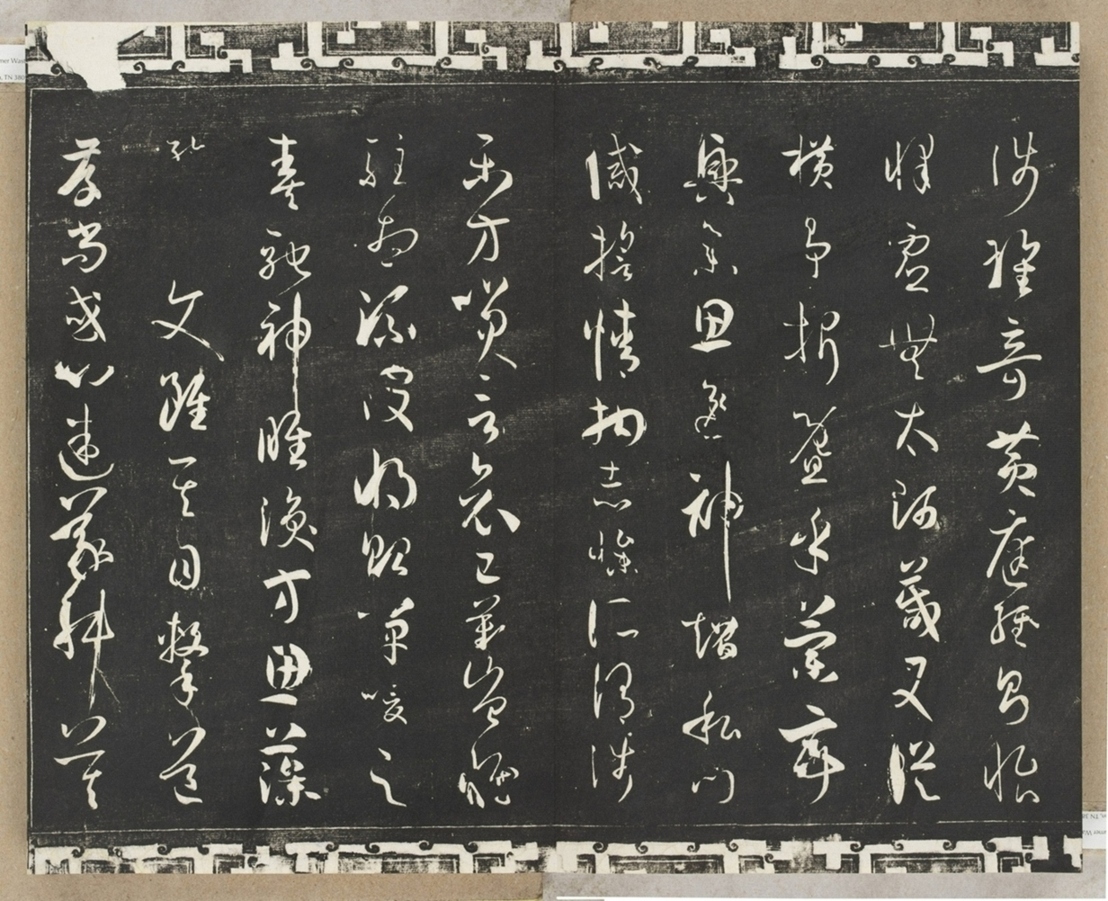 涉瓌奇黃庭經則怡
懌虛無太師箴又從
橫爭折暨乎蘭亭
興集思逸神超私門
誡誓情拘志慘所謂涉
樂方笑言哀已歎豈惟
駐想流波將貽嘽噯之
奏馳神睢渙方思藻
文雖其目擊道
存尚或心迷議舛莫